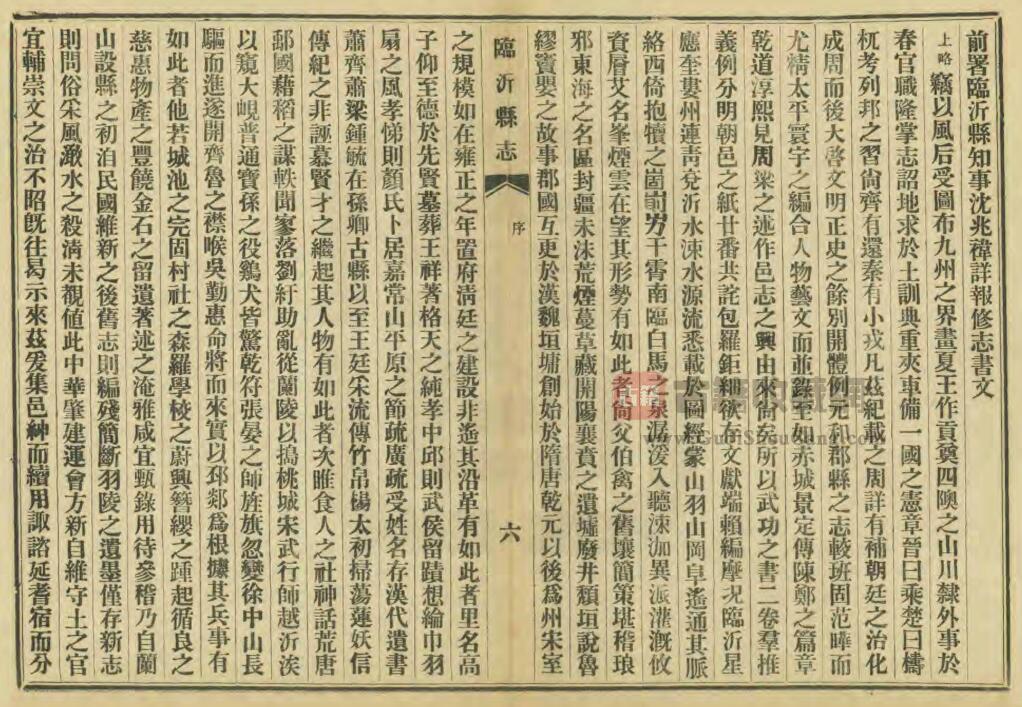 前署臨沂縣知事沈兆禕詳報修志書文
上略竊以風后受圖布九州之界畫夏王作貢奠四隩之山川隸外事於
春官職隆掌志詔地求於土訓典重夾車備一國之憲章晉曰乘楚曰檮
杌考列邦之習尙齊有還秦有小戎凡茲紀載之周詳有補朝廷之治化
成周而後大啓文明正史之餘別開體例元和郡縣之志較班固范曄而
尤精太平寰宇之編合人物藝文而並錄至如赤城景定傳陳鄭之篇章
乾道淳熙見周梁之述作邑志之興由來尙矣所以武功之書二卷羣推
義例分明朝邑之紙廿番共詫包羅鉅細欲存文獻端賴編摩況臨沂星
應奎婁州連靑兗沂水涑水源流悉載於圖經蒙山羽山岡阜遙通其脈
絡西倚抱犢之崮前屴干霄南臨白馬之泉潺湲入聽涑泇異派灌漑攸
資層艾名峯煙雲在望其形勢有如此者尙父伯禽之舊壤簡策堪稽琅
邪東海之名區封疆未沫荒煙蔓草藏開陽襄賁之遺墟廢井頹垣說魯
繆竇嬰之故事郡國互更於漢魏垣墉創始於隋唐乾元以後爲州宋室
臨沂縣志
序
六
之規模如在雍正之年置府淸廷之建設非遙其沿革有如此者里名高
子仰至德於先賢墓葬王祥著格天之純孝中邱則武侯留蹟想綸巾羽
扇之風孝悌則顏氏卜居嘉常山平原之節疏廣疏受姓名存漢代遺書
蕭齊蕭梁鍾毓在孫卿古縣以至王廷采流傳竹帛楊太初掃蕩蓮妖信
傳紀之非誣慕賢才之繼起其人物有如此者次睢食人之社神話荒唐
鄅國藉稻之謀軼聞寥落劉紆助亂從蘭陵以搗桃城宋武行師越沂涘
以窺大峴普通寶孫之役鷄犬皆驚乾符張晏之師旌旗忽變徐中山長
驅而進遂開齊魯之襟喉吳勤惠命將而來實以邳郯爲根據其兵事有
如此者他若城池之完固村社之森羅學校之蔚興簪纓之踵起循良之
慈惠物產之豐饒金石之留遺著述之淹雅咸宜甄錄用待參稽乃自蘭
山設縣之初洎民國維新之後舊志則編殘簡斷羽陵之遺墨僅存新志
則問俗采風瀓水之殺淸未覩値此中華肇建運會方新自維守土之官
宜輔崇文之治不昭旣往曷示來茲爰集邑紳而續用諏諮延耆宿而分
古籍收藏网
www.GuJiShouCang.com